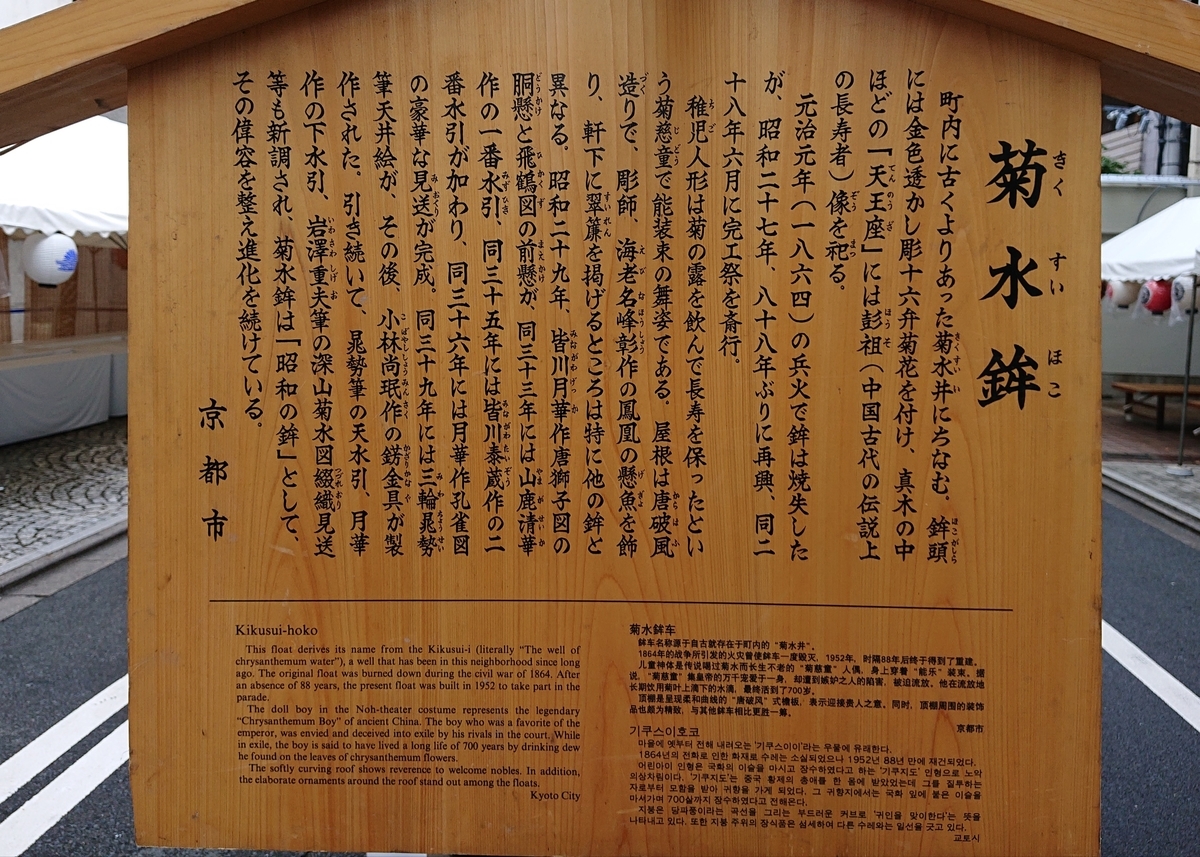 菊水鉾
町内に古くよりあった菊水井にちなむ。鉾頭
には金色透かし彫十六弁菊花を付け、真木の中
ほどの「天王座」には彭祖（中国古代の伝説上
の長寿者）像を祀る。
元治元年（一八六四）の兵火で鉾は焼失した
が、昭和二十七年、八十八年ぶりに再興、同二
十八年六月に完工祭を斎行。
稚児人形は菊の露を飲んで長寿を保ったとい
う菊慈童で能装束の舞姿である。屋根は唐破風
造りで、彫師、海老名峰彰作の鳳凰の懸魚を飾
り、軒下に翠簾を掲げるところは特に他の鉾と
異なる。昭和二十九年、皆川月華作唐獅子図の
胴懸と飛鶴図の前懸が、同三十三年には山鹿清華
作の一番水引、同三十五年には皆川泰蔵作の二
番水引が加わり、同三十六年には月華作孔雀図
の豪華な見送が完成。同三十九年には三輪晁勢
筆天井絵が、その後、小林尚珉作の錺金具が製
作された。引き続いて、晁勢筆の天水引、月華
作の下水引、岩澤重夫筆の深山菊水図綴織見送
等も新調され、菊水鉾は「昭和の鉾」として、
その偉容を整え進化を続けている。
京都市
Kikusui-hoko
This float derives its name from the Kikusui-i (literally “The well of
chrysanthemum water”), a well that has been in this neighborhood since long
ago. The original float was burned down during the civil war of 1864. After
an absence of 88 years, the present float was built in 1952 to take part in the
parade.
The doll boy in the Noh-theater costume represents the legendary
“Chrysanthemum Boy” of ancient China. The boy who was a favorite of the
emperor, was envied and deceived into exile by his rivals in the court. While
in exile, the boy is said to have lived a long life of 700 years by drinking dew
he found on the leaves of chrysanthemum flowers.
The softly curving roof shows reverence to welcome nobles. In addition,
the elaborate ornaments around the roof stand out among the floats.
Kyoto City
菊水鉾车
鉾车名称源于自古就存在于町内的“菊水井”。
1864年的战争所引发的火灾曾使鉾车一度毁灭，1952年，时隔88年后终于得到了重建。
儿童神体是传说喝过菊水而长生不老的“菊慈童”人偶，身上穿着“能乐”装束。据
说，“菊慈童”集皇帝的万千宠爱于一身，却遭到嫉妒之人的陷害，被迫流放。他在流放地
长期饮用菊叶上滴下的水滴，最终活到了700岁。
顶棚是呈现柔和曲线的“唐破风”式檐板，表示迎接贵人之意。同时，顶棚周围的装饰
品也颇为精致，与其他鉾车相比更胜一筹。
京都市
기쿠스이호코
마을에 옛부터 전해 내려오는 '기쿠스이이'라는 우물에 유래한다.
1864년의 전화로 인한 화재로 수레는 소실되었으나 1952년 88년 만에 재건되었다.
어린아이 인형은 국화의 이슬을 마시고 장수하였다고 하는 '기쿠지도' 인형으로 노악
의상차림이다. '기쿠지도'는 중국 황제의 총애를 한 몸에 받았었는데 그를 질투하는
자로부터 모함을 받아 귀향을 가게 되었다. 그 귀향지에서는 국화 잎에 붙은 이슬을
마셔가며 700살까지 장수하였다고 전해온다.
지붕은 당파풍이라는 곡선을 그리는 부드러운 커브로 '귀인을 맞이한다'는 뜻을
나타내고 있다. 또한 지붕 주위의 장식품은 섬세하여 다른 수레와는 일선을 긋고 있다.
교토시